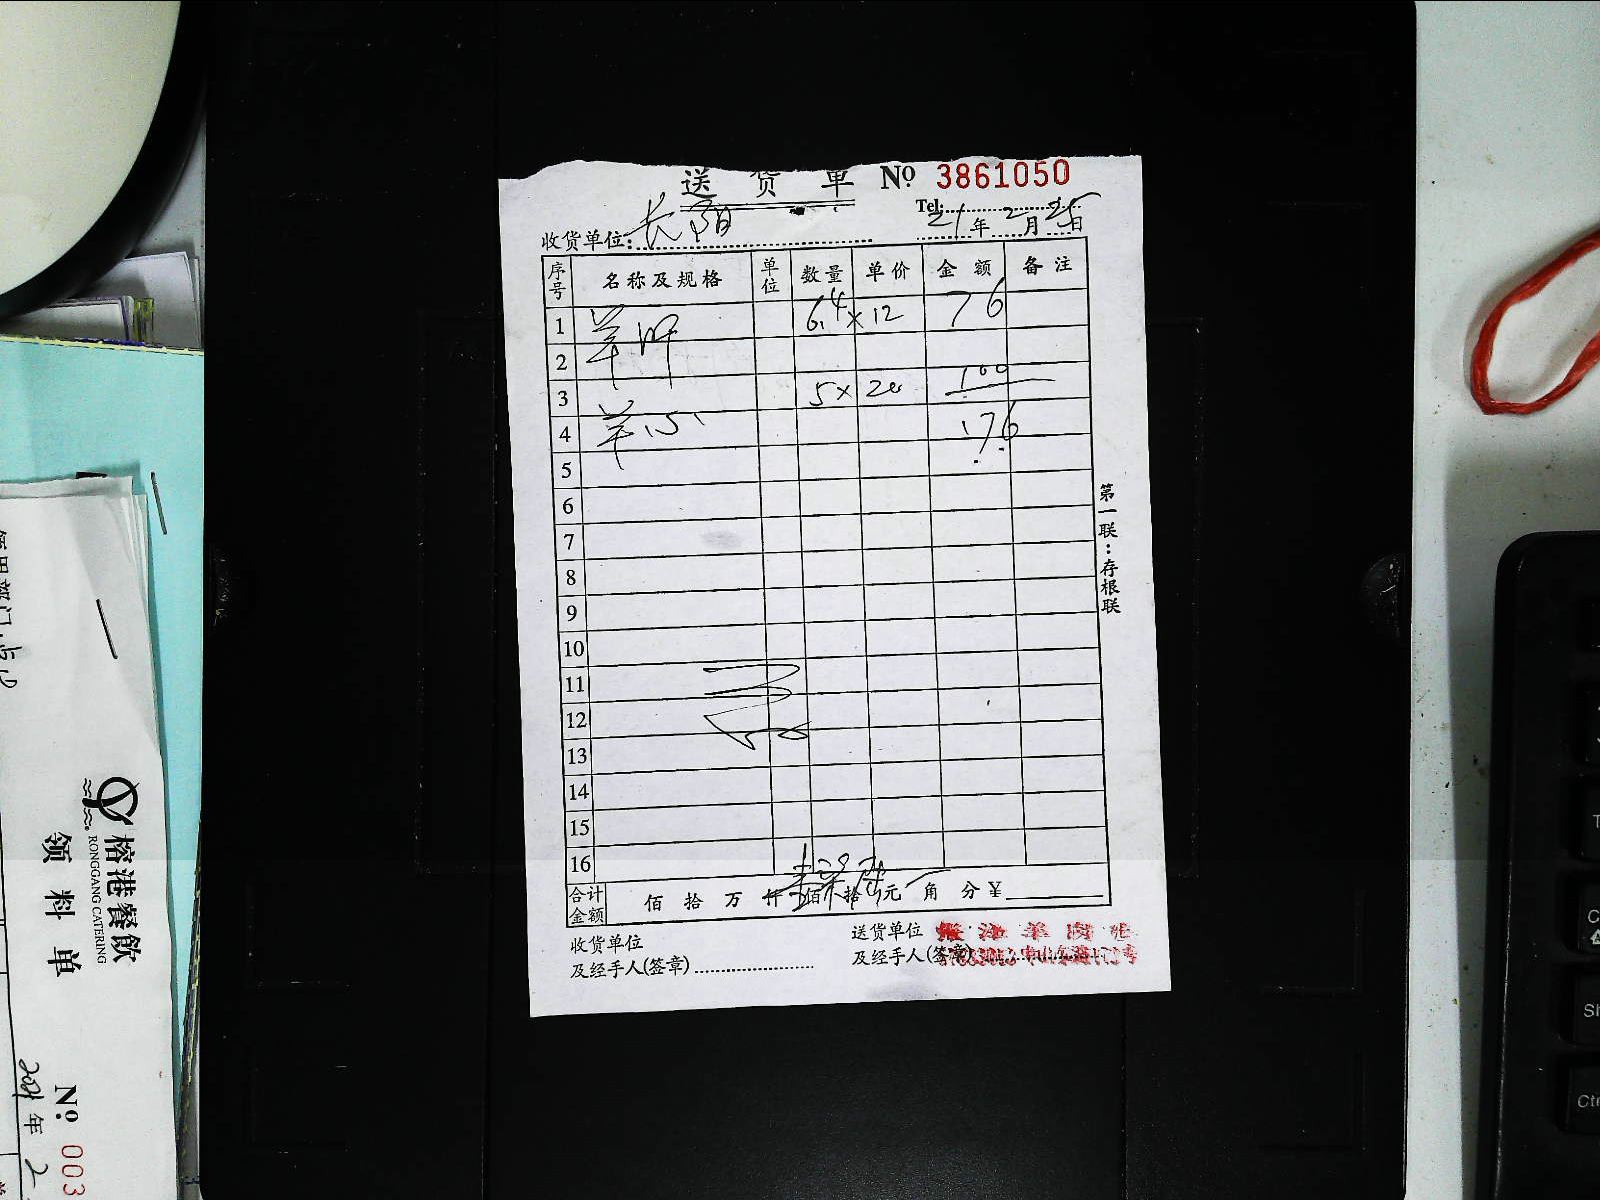 送 货 单 Nº 3861050
Tel:
收货单位: 长阳 21 年 2 月 25 日
序号 名称及规格 单位 数量 单价 金额 备注
1 羊肝 6.4 × 12 76
2
3 5 × 20 100
4 羊心 176
5
6
7
8
9
10
11
12
13
14
15
16
合计金额 佰 拾 万 仟 佰 拾 元 角 分 ¥
收货单位
及经手人(签章)
送货单位
及经手人(签章)
第一联:存根联
榕港餐飲
RONGGANG CATERING
领 料 单
Nº 003
2021 年 2
Ctr